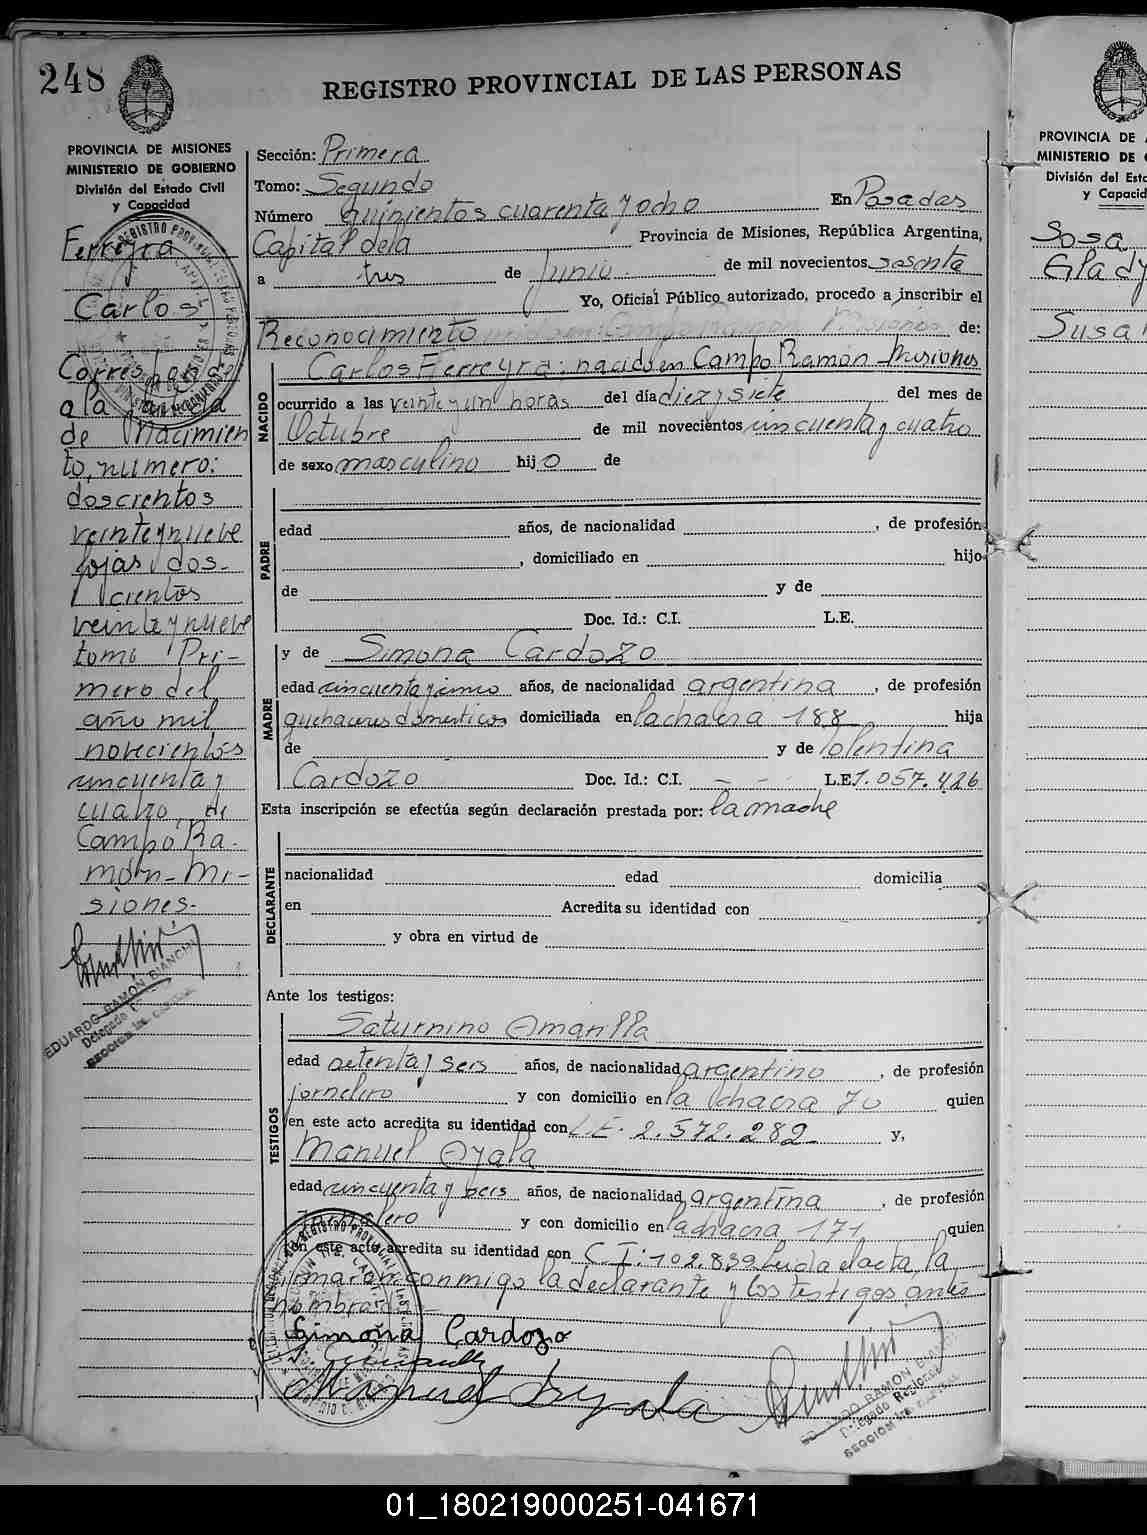 248
REGISTRO PROVINCIAL DE LAS PERSONAS
PROVINCIA DE MISIONES
MINISTERIO DE GOBIERNO
División del Estado Civil
y Capacidad
Ferreyra
Carlos
Corresponde
a la
de Nacimien
to, numero:
doscientos
veinte y nueve
fojas dos-
cientos
veinte y nueve
tomo Pri-
mero del
año mil
novecientos
cincuenta y
cuatro, de
Campo Ra-
món - Mi-
siones-
EDUARDO RAMÓN BIANCHI
Delegado
SECCION
Sección: Primera
Tomo: Segundo
Número quinientos cuarenta y ocho En Posadas
Capital de la Provincia de Misiones, República Argentina,
a tres de Junio de mil novecientos sesenta
Yo, Oficial Público autorizado, procedo a inscribir el
Reconocimiento de:
NACIDO
Carlos Ferreyra, nacido en Campo Ramón Misiones
ocurrido a las veinte y un horas del día diez y siete del mes de
Octubre de mil novecientos cincuenta y cuatro
de sexo masculino hijo de
PADRE
edad años, de nacionalidad , de profesión
, domiciliado en hijo
de y de
Doc. Id.: C.I. L.E.
MADRE
y de Simona Cardozo
edad cincuenta y cinco años, de nacionalidad argentina , de profesión
quehaceres domesticos domiciliada en la chacra 188 hija
de y de Tolentina
Cardozo Doc. Id.: C.I. — — L.E. 1.057.426
Esta inscripción se efectúa según declaración prestada por: la madre
DECLARANTE
nacionalidad edad domicilia
en Acredita su identidad con
y obra en virtud de
Ante los testigos:
TESTIGOS
Saturnino Amarilla
edad setenta y seis años, de nacionalidad argentino , de profesión
jornalero y con domicilio en la chacra 70 quien
en este acto acredita su identidad con L.E. 2.572.282 y,
Manuel Ayala
edad cincuenta y seis años, de nacionalidad argentina , de profesión
jornalero y con domicilio en la chacra 171 quien
en este acto acredita su identidad con C.I: 102.839 Leida el acta, la
firmaron conmigo la declarante y los testigos antes
nombrados
Simona Cardozo
Manuel Ayala
RAMÓN BIANCHI
Delegado Regional
SECCION
PROVINCIA DE
MINISTERIO DE
División del Esta
y Capacid
Sosa
Glady
Susa
01_180219000251-041671